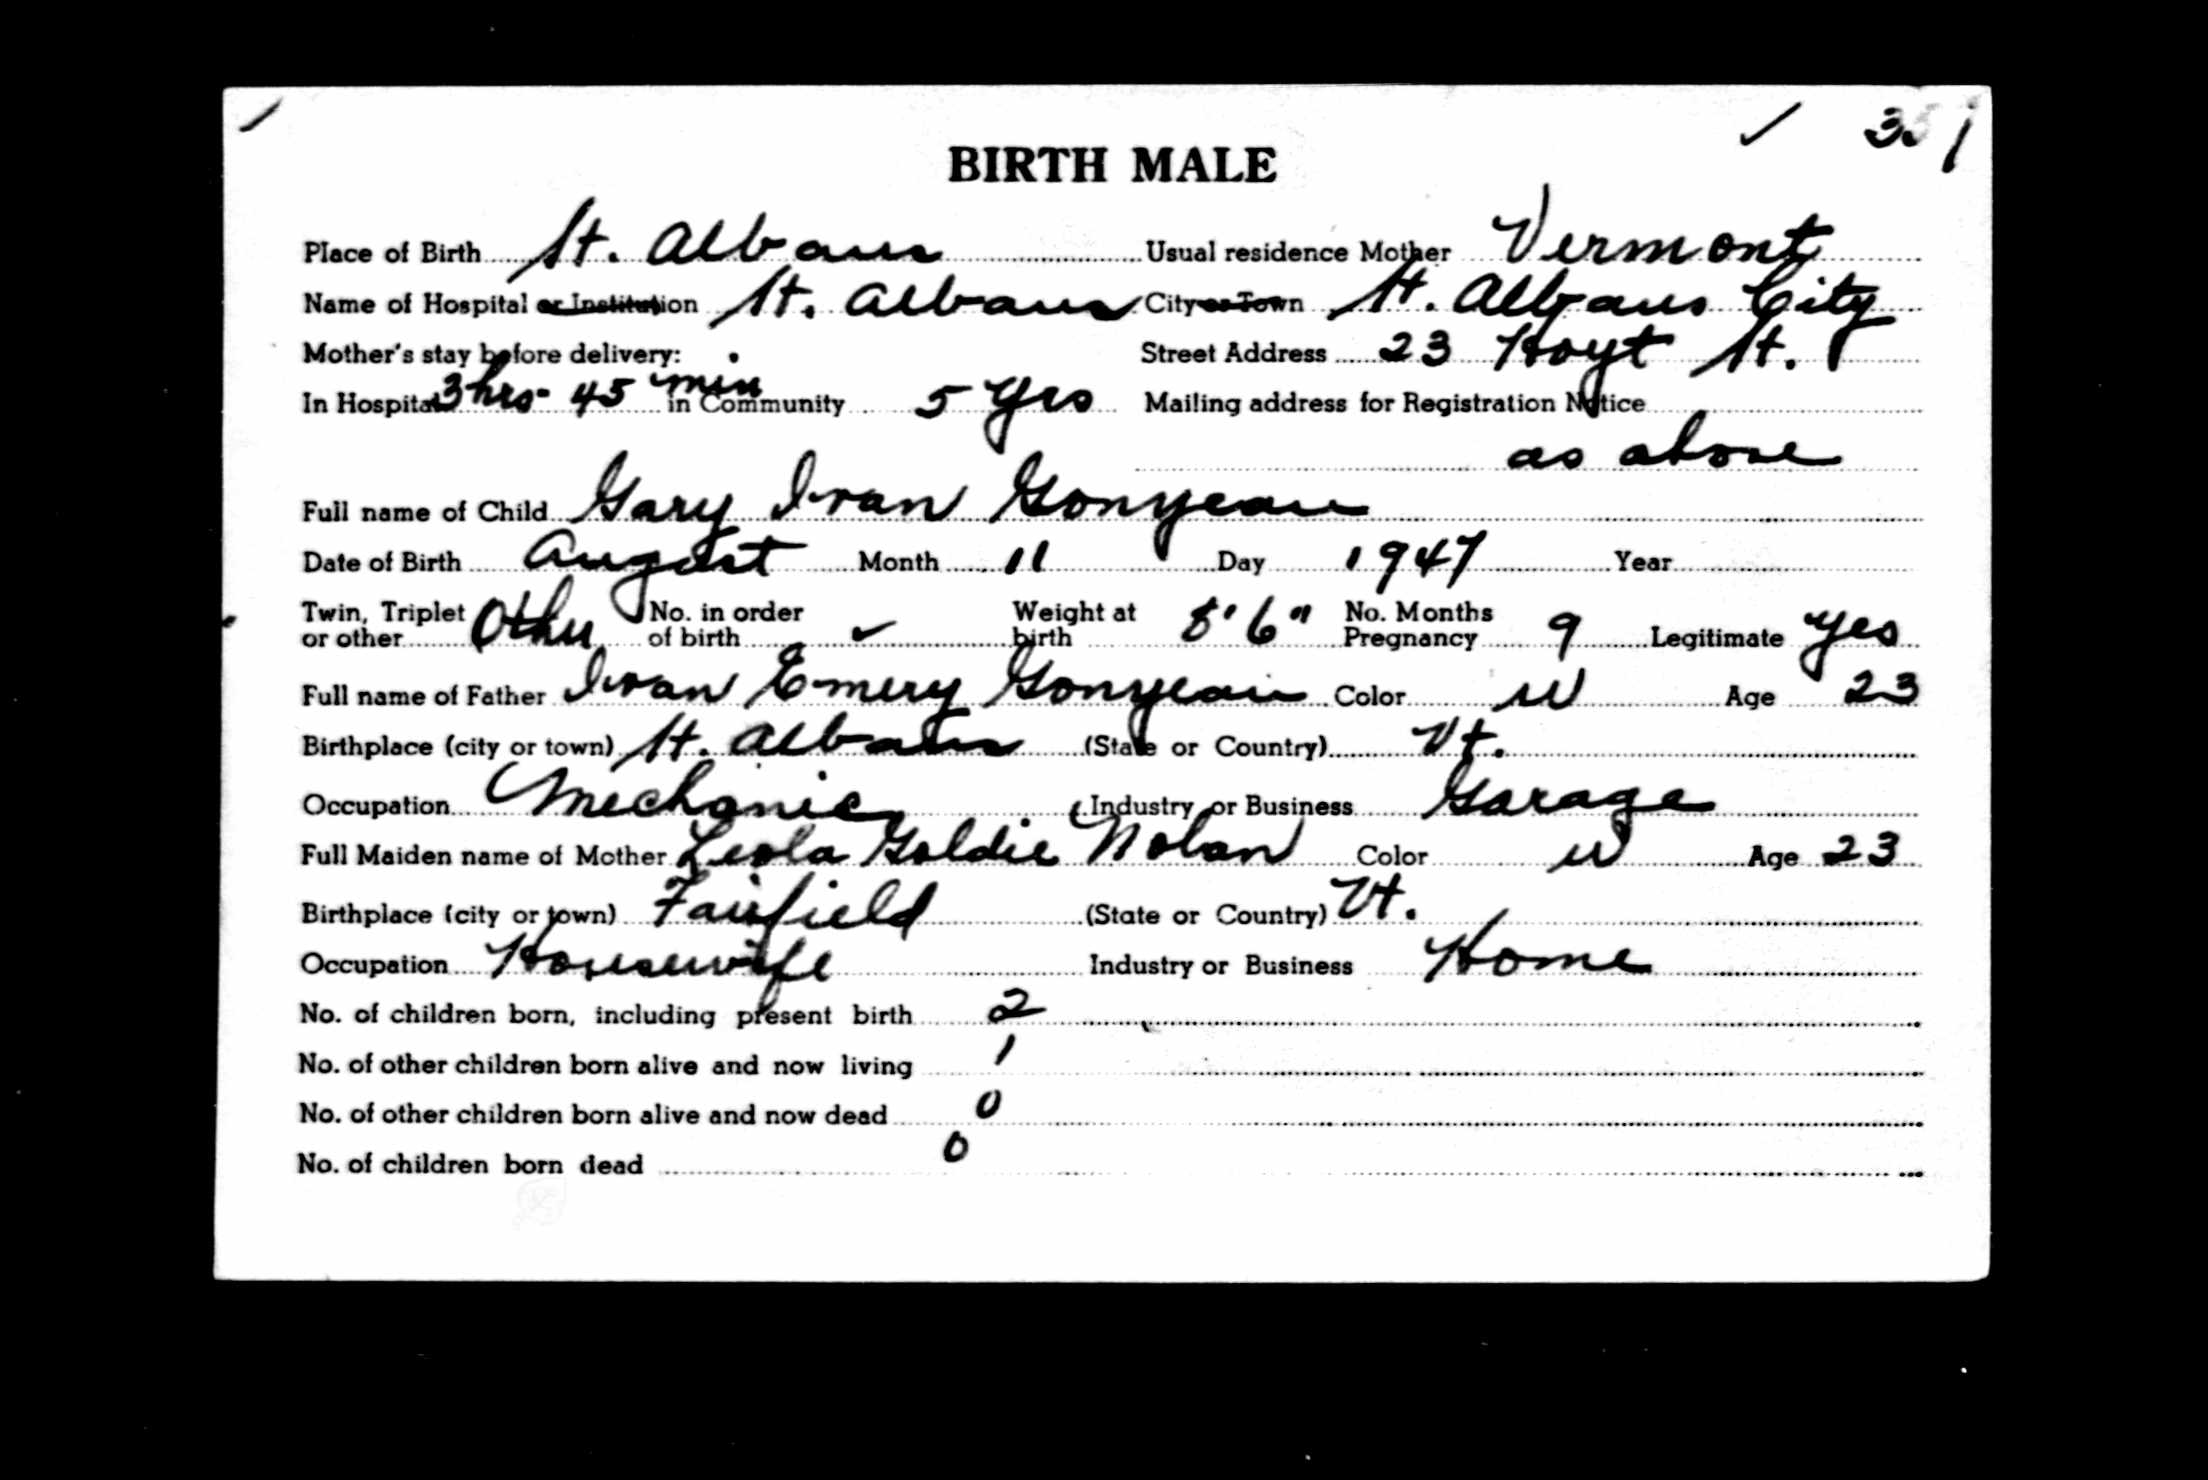 ✓ 351
BIRTH MALE
Place of Birth St. Albans Usual residence Mother Vermont
Name of Hospital or Institution St. Albans City or Town St. Albans City
Mother's stay before delivery: Street Address 23 Hoyt St.
In Hospital 3 hrs - 45 min in Community 5 yrs Mailing address for Registration Notice
as above
Full name of Child Gary Ivan Gonyeau
Date of Birth August Month 11 Day 1947 Year
Twin, Triplet or other Other No. in order of birth ✓ Weight at birth 8' 6" No. Months Pregnancy 9 Legitimate yes
Full name of Father Ivan Emery Gonyeau Color W Age 23
Birthplace (city or town) St. Albans (State or Country) Vt.
Occupation Mechanic Industry or Business Garage
Full Maiden name of Mother Leola Goldie Nolan Color W Age 23
Birthplace (city or town) Fairfield (State or Country) Vt.
Occupation Housewife Industry or Business Home
No. of children born, including present birth 2
No. of other children born alive and now living 1
No. of other children born alive and now dead 0
No. of children born dead 0